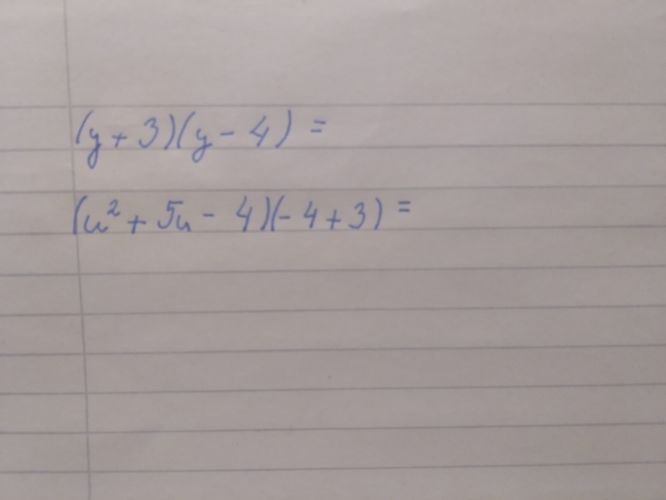 (y + 3)(y - 4) =
(u² + 5u - 4)(- 4 + 3) =